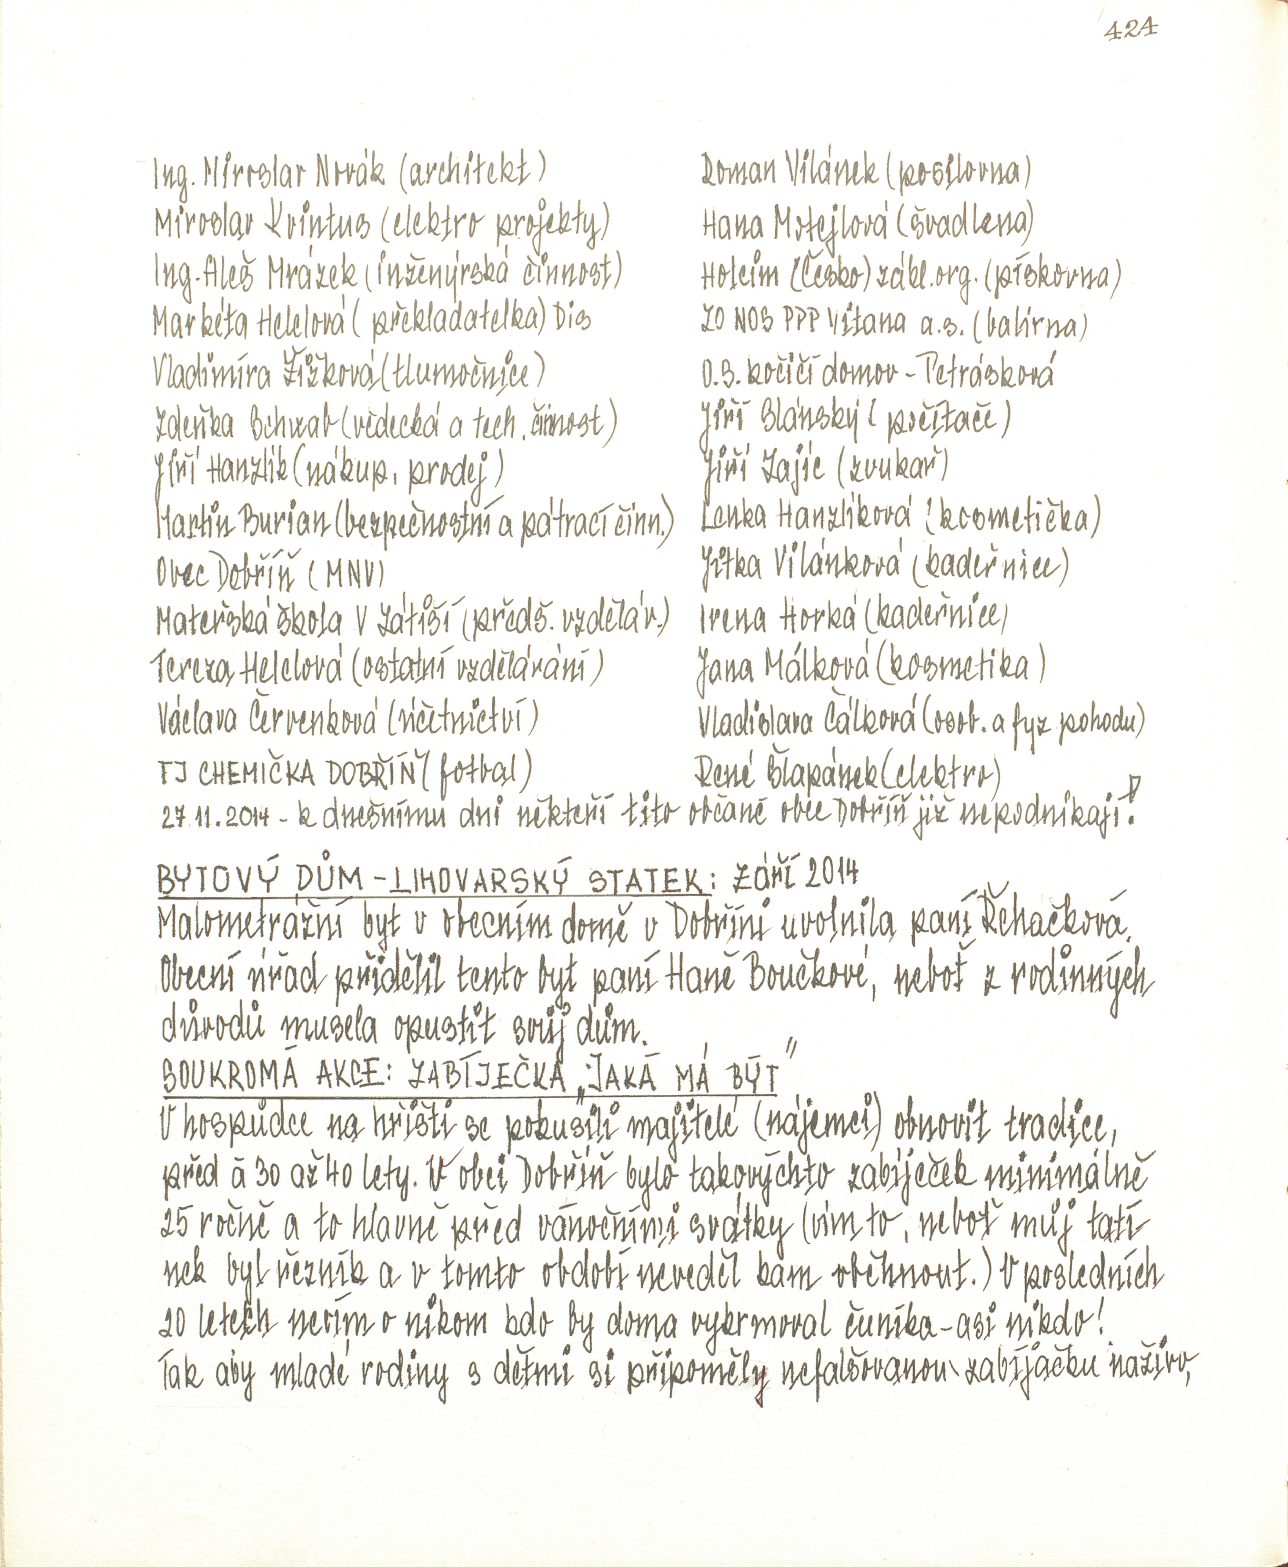 424
Ing. Miroslav Novák (architekt)
Miroslav Kvintus (elektro projekty)
Ing. Aleš Mrázek (inženýrská činnost)
Markéta Helclová (překladatelka) Dis
Vladimíra Žižková (tlumočnice)
Zdeňka Schwab (vědecká a tech. činnost)
Jiří Hanzlík (nákup, prodej)
Martin Burian (bezpečnostní a pátrací činn.)
Obec Dobříň (MNV)
Mateřská škola V Zátiší (předš. vzděláv.)
Tereza Helclová (ostatní vzdělávání)
Václava Červenková (účetnictví)
TJ CHEMIČKA DOBŘÍŇ (fotbal)
Roman Vilánek (posilovna)
Hana Motejlová (švadlena)
Holcim (Česko) zákl. org. (pískovna)
ZO NOS PPP Vitana a.s. (balírna)
O.S. kočičí domov - Petrásková
Jiří Slánský (počítače)
Jiří Zajíc (zvukař)
Lenka Hanzlíková (kosmetička)
Jitka Vilánková (kadeřnice)
Irena Horká (kadeřnice)
Jana Málková (kosmetika)
Vladislava Čálková (osob. a fyz pohodu)
René Šlapánek (elektro)
27.11.2014 - k dnešnímu dni někteří tito občané obce Dobříň již nepodnikají!
BYTOVÝ DŮM - LIHOVARSKÝ STATEK: září 2014
Malometrážní byt v obecním domě v Dobříni uvolnila paní Řehačková.
Obecní úřad přidělil tento byt paní Haně Boučkové, neboť z rodinných
důvodů musela opustit svůj dům.
SOUKROMÁ AKCE: ZABÍJEČKA „JAKÁ MÁ BÝT"
V hospůdce na hřišti se pokusili majitelé (nájemci) obnovit tradice,
před á 30 až 40 lety. V obci Dobříň bylo takovýchto zabíječek minimálně
25 ročně a to hlavně před vánočními svátky (vím to, neboť můj tatí
nek byl řezník a v tomto období nevěděl kam oběhnout.) V posledních
20 letech nevím o nikom kdo by doma vykrmoval čuníka - asi nikdo!
Tak aby mladé rodiny s dětmi si připoměly nefalšovanou zabíjačku naživo,